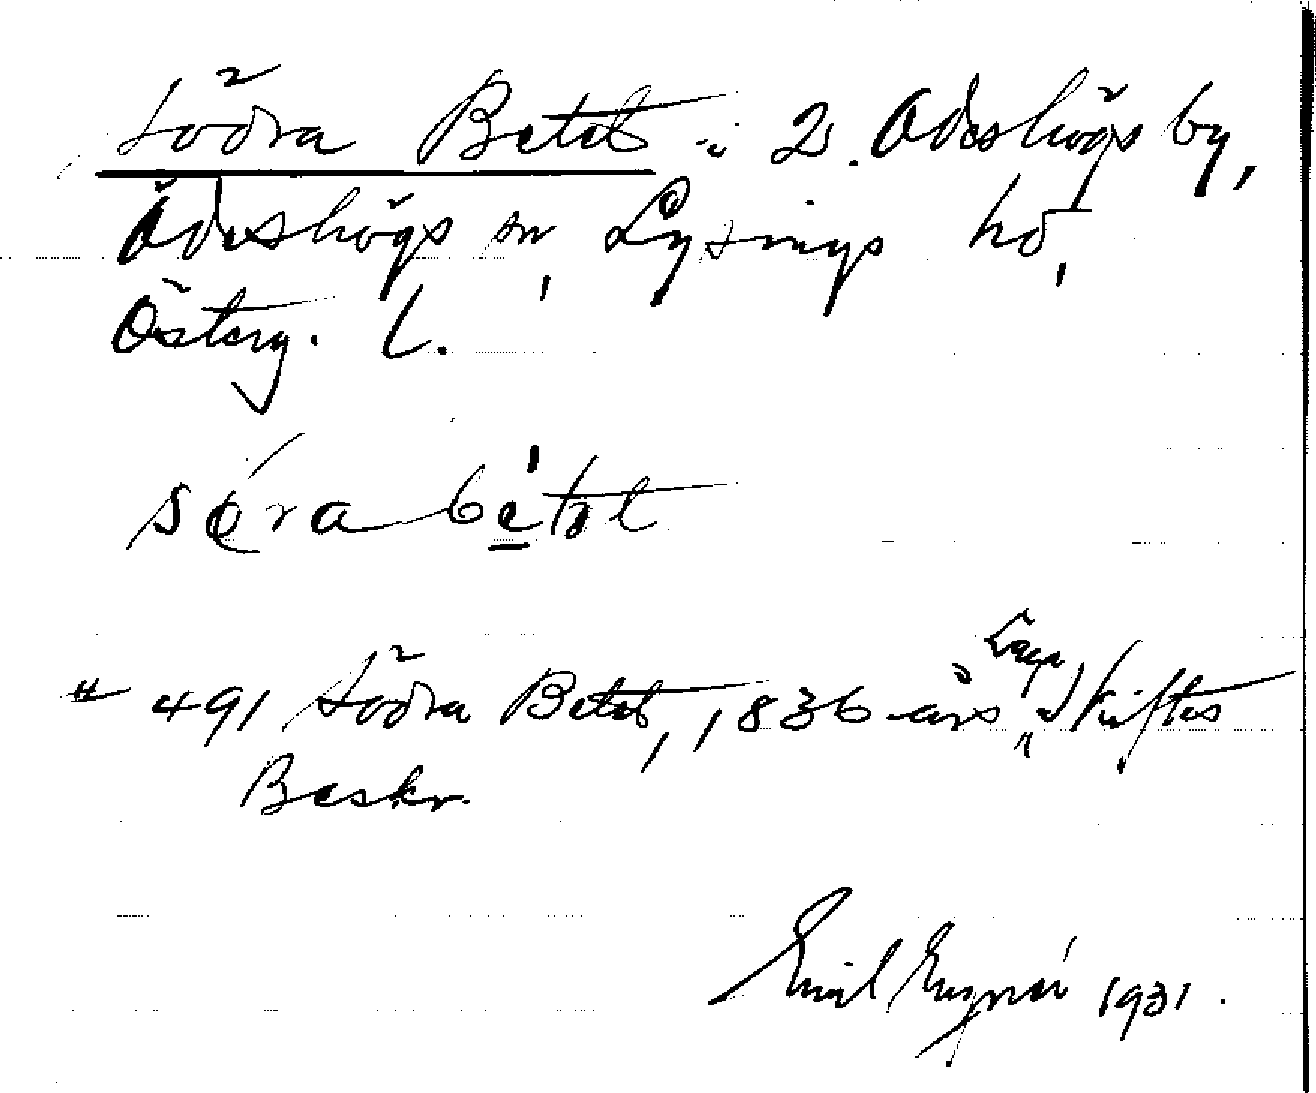 Södra Betet i 2. Ödeshögs by,
Ödeshögs sn, Lysings hd,
Österg. l.
sǫ́ra bétət
# 491 Södra Betet, 1836 års Laga Skiftes
Beskr.
Emil 1931.